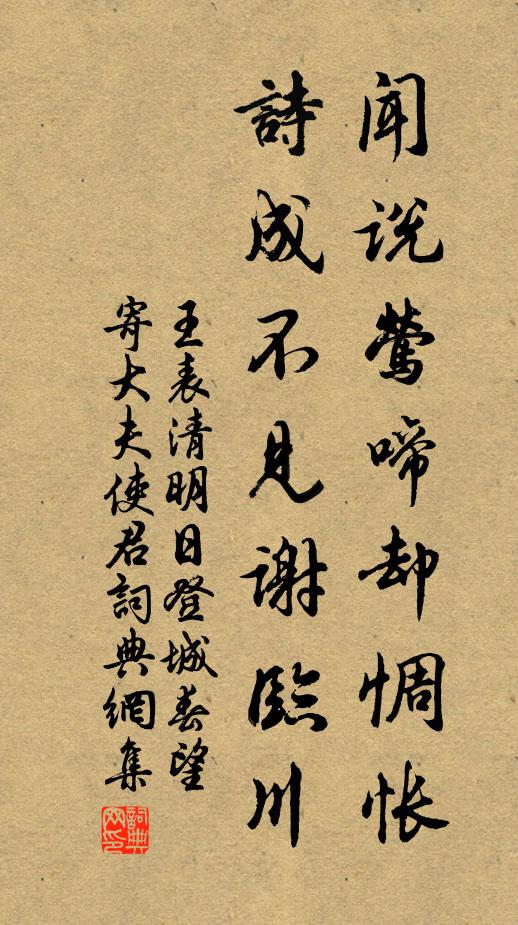 闻说莺啼却惆怅
詩成不見謝臨川
王表清明日登城春望
寄大夫使君詞典網集
詞典网印